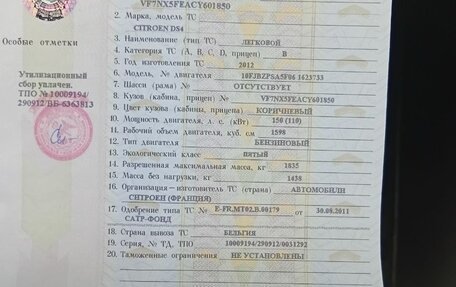 VF7NX5FEACY601850
2. Марка, модель ТС
CITROEN DS4
3. Наименование (тип ТС) ЛЕГКОВОЙ
4. Категория ТС (А, В, С, D, прицеп) В
5. Год изготовления ТС 2012
6. Модель, № двигателя 10FJBZPSA5F06 1623733
7. Шасси (рама) № ОТСУТСТВУЕТ
8. Кузов (кабина, прицеп) № VF7NX5FEACY601850
9. Цвет кузова (кабины, прицепа) КОРИЧНЕВЫЙ
10. Мощность двигателя, л. с. (кВт) 150 (110)
11. Рабочий объем двигателя, куб. см 1598
12. Тип двигателя БЕНЗИНОВЫЙ
13. Экологический класс ПЯТЫЙ
14. Разрешенная максимальная масса, кг 1835
15. Масса без нагрузки, кг 1438
16. Организация – изготовитель ТС (страна) АВТОМОБИЛИ
СИТРОЕН (ФРАНЦИЯ)
17. Одобрение типа ТС № E-FR.MT02.B.00179 от 30.08.2011
САТР-ФОНД
18. Страна вывоза ТС БЕЛЬГИЯ
19. Серия, № ТД, ТПО 10009194/290912/0051292
20. Таможенные ограничения НЕ УСТАНОВЛЕНЫ
Особые отметки
Утилизационный
сбор уплачен.
ТПО № 10009194/
290912/ВБ-6363813